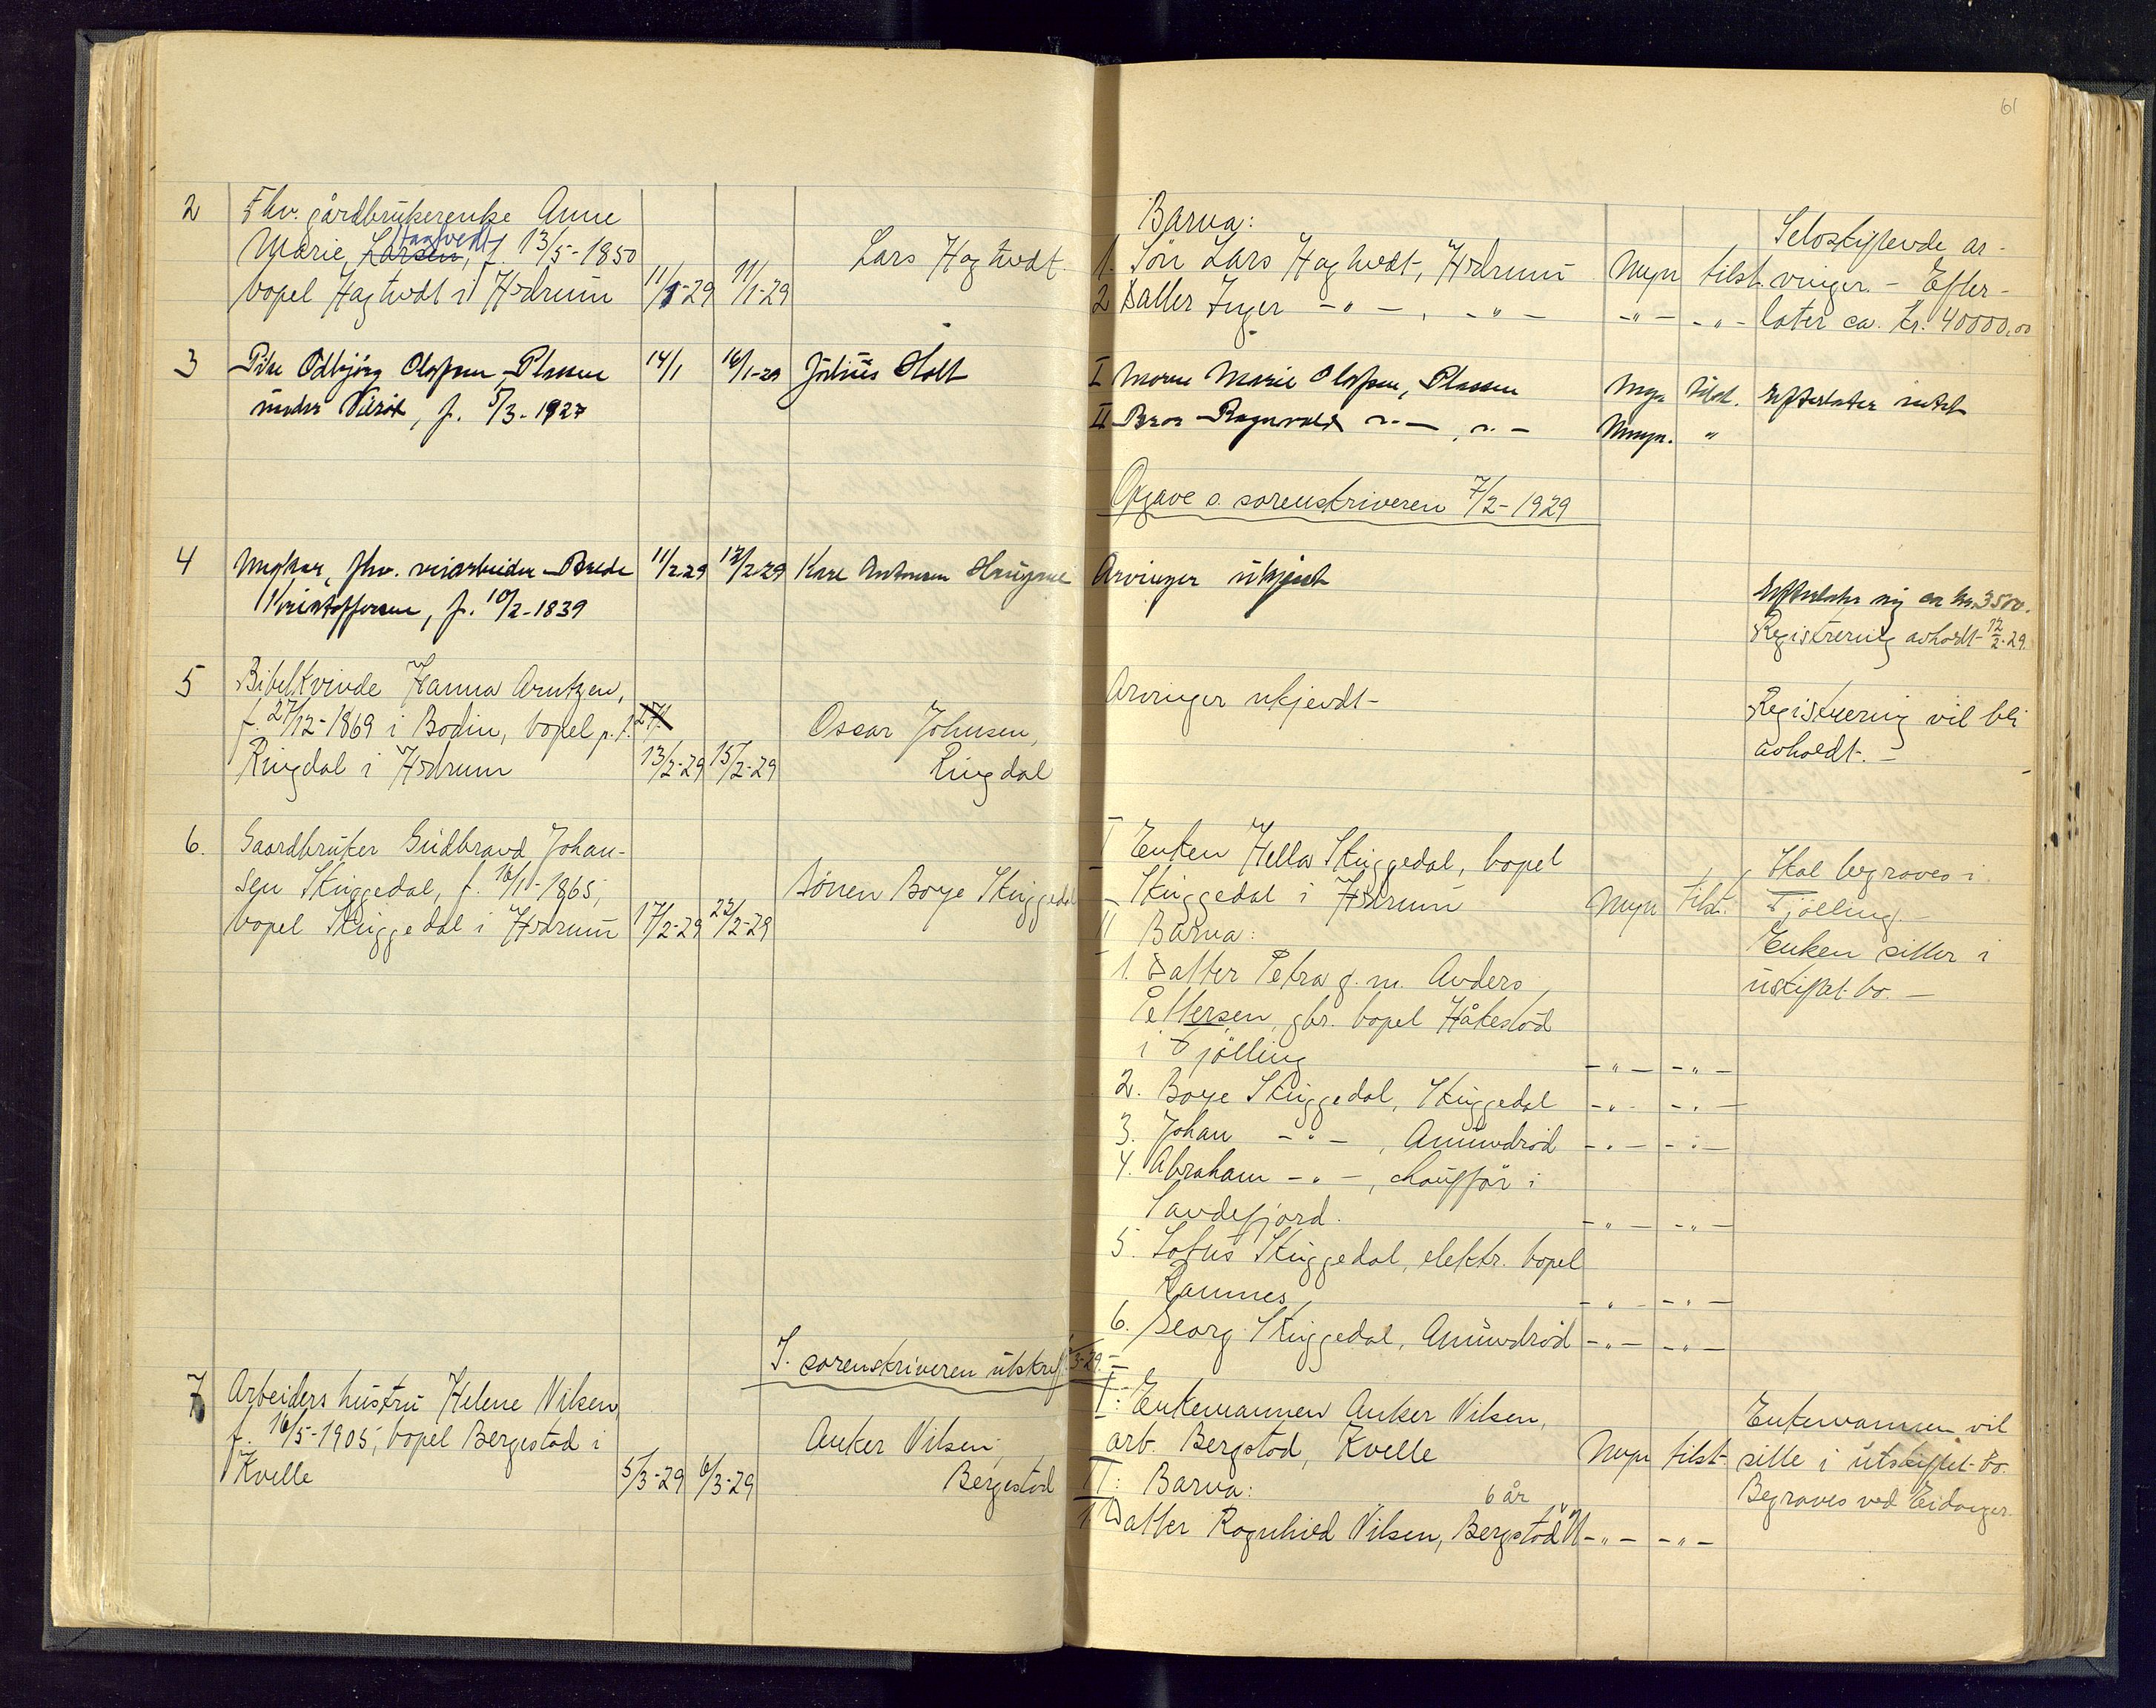 61
2 Fhv. gårdbrukerenke Anne
Marie Larsen, Hagtvedt f. 13/5-1850
bopel Hagtvedt i Hedrum 11/1-29 11/1-29 Lars Hagtvedt.
3 Pike Odbjörg Olafsen Plassen 14/1 16/1-29 Julius Holt
under Vilröd, f. 5/3-1927
4 Ungkar, fhv. veiarbeider Brede 11/2-29 12/2-29 Karl Antonsen
Kristoffersen, f. 10/2-1839
5 Bibelkvinde Hanna Arntzen,
f. 27/12-1869 i Bodin, bopel p.t.
Ringdal i Hedrum 13/2-29 15/2-29 Oscar Johnsen,
Ringdal
6. Gaardbruker Gudbrand Johan-
sen Skuggedal, f. 16/1-1865,
bopel Skuggedal i Hedrum 17/2-29 22/2-29 Sönen Borge Skuggedal
T. sorenskriveren utskrift 3-29.
7 Arbeiders hustru Helene Nilsen,
f. 16/5-1905, bopel Bergestad i
Kvelle 5/3-29 6/3-29 Anker Nilsen,
Bergestad
Barna:
1. Sön Lars Hagtvedt, Hedrum Myn tilst.
2 Datter Inger -"- , -"- -"- -"-
Selvskiftende ar-
vinger. - Efter-
later ca. kr. 40000,00
I Moren Marie Olafsen, Plassen Myn tilst. Efterlater intet
II Bror Ragnvald -"- , -"- Umyn. "
Opgave s. sorenskriveren 7/2-1929
Arvinger ukjent
Efterlater sig ca kr. 3500.
Registrering avholdt 12/2-29.
Arvinger ukjendt-
Registrering vil bli
avholdt. -
I Enken Hella Skuggedal, bopel
Skuggedal i Hedrum Myn tilst.
Skal begraves i
Tjölling -
Enken sitter i
uskiftet bo. -
II Barna:
1. Datter Petra g. m. Anders
Pettersen, gbr. bopel Håkestad
i Tjölling -"- -"-
2. Borge Skuggedal, Skuggedal -"- -"-
3. Johan -"- , Amundröd -"- -"-
4. Abraham -"- , chaufför i
Sandefjord. -"- -"-
5. Lotus Skuggedal, elektr. bopel
Ramnes, -"- -"-
6. Georg Skuggedal, Amundröd -"- -"-
I: Enkemannen Anker Nilsen,
arb. Bergstad, Kvelle Myn tilst.
Enkemannen vil
sitte i uskiftet bo.
Begraves ved Eidanger.
II: Barna:
1. Datter Ragnhild Nilsen, Bergstad 6 år -"- -"-